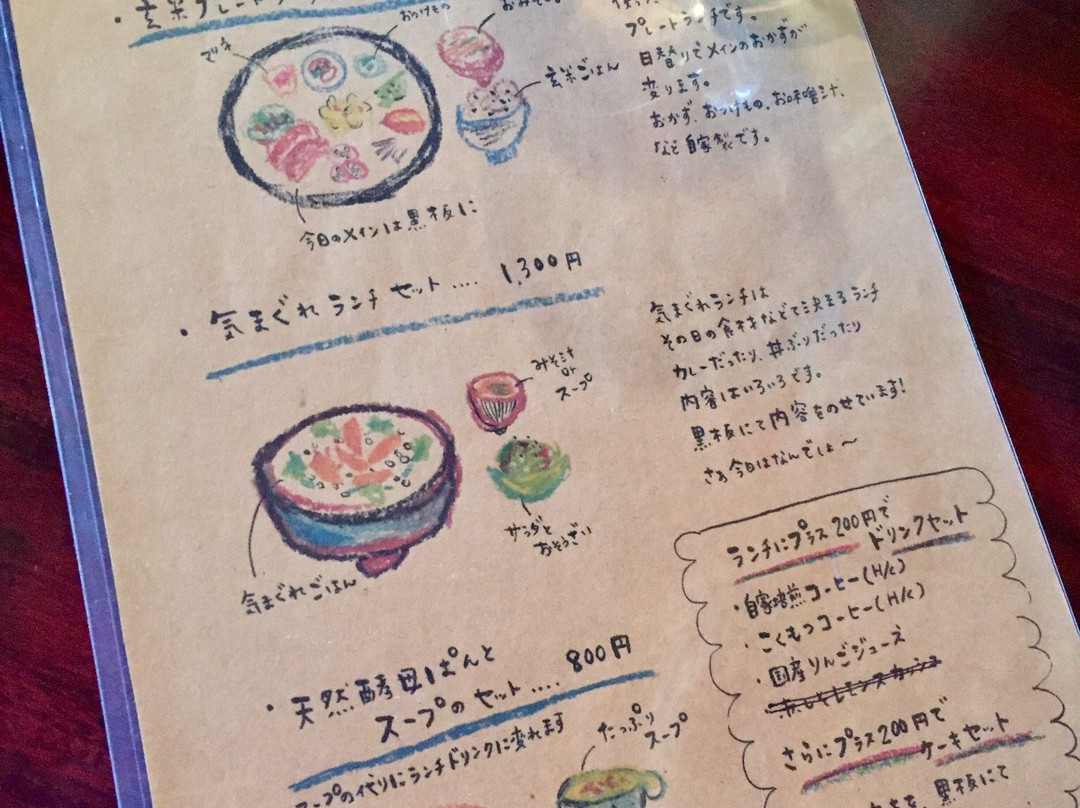 ・玄米プレートラ
マリネ
おつけもの
おみそ
玄米ごはん
今日のメインは黒板に
プレートランチです。
日替りでメインのおかずが
変ります。
おかず、おつけもの、お味噌汁、
など自家製です。
・気まぐれランチセット.... 1,300円
みそ汁
or
スープ
サラダと
おそうざい
気まぐれごはん
気まぐれランチは
その日の食材などで決まるランチ
カレーだったり、丼ぶりだったり
内容はいろいろです。
黒板にて内容をのせています!
さあ今日はなんでしょ〜
・天然酵母ぱんと
スープのセット.... 800円
スープの代りにランチドリンクに変れます
たっぷり
スープ
ランチにプラス200円で
ドリンクセット
・自家焙煎コーヒー(H/C)
・こくもつコーヒー(H/C)
・国産りんごジュース
さらにプラス200円で
ケーキセット
黒板にて